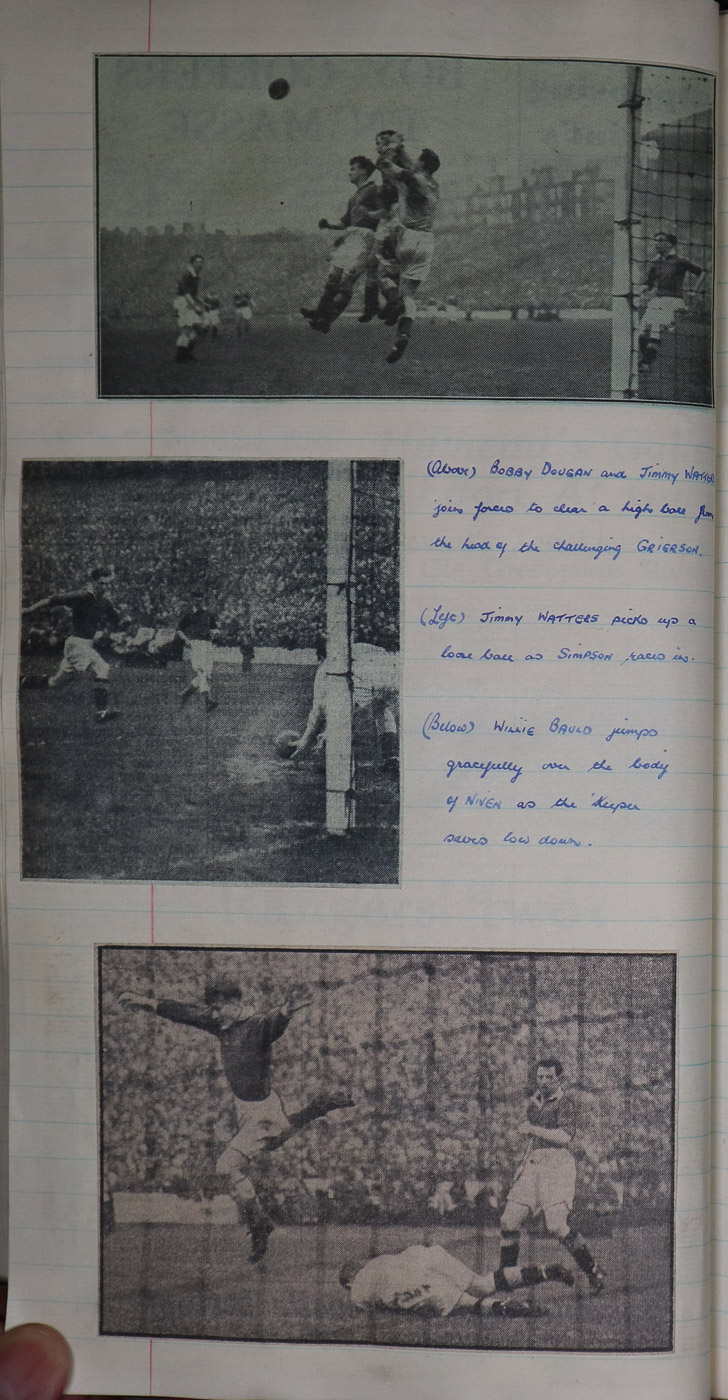 (Above) BOBBY DOUGAN and Jimmy WATTERS
joins forces to clear a high ball from
the head of the challenging GRIERSON.
(Left) Jimmy WATTERS picks up a
loose ball as SIMPSON races in.
(Below) WILLIE BAULD jumps
gracefully over the body
of NIVEN as the 'Keeper
saves low down.